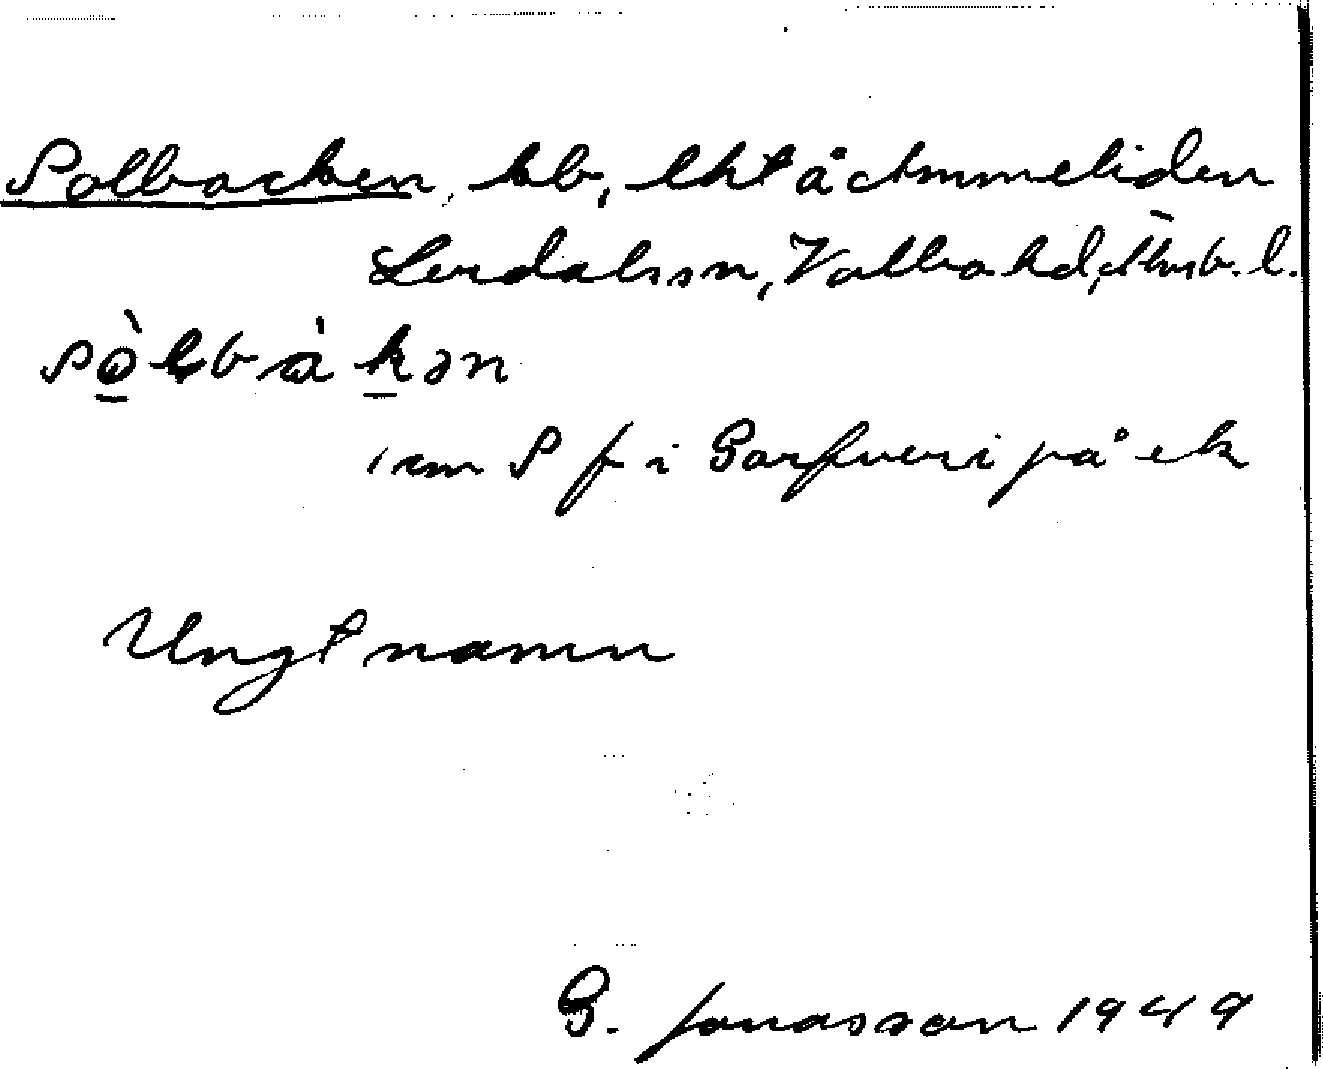 Solbacken, bb, lht å Ammeliden
Lerdals sn, Valbo hd, Älvsb. l.
sò̱lbàḵən
1 sm S f i Garfveri på ek
Ungt namn
G. Jonasson 1949